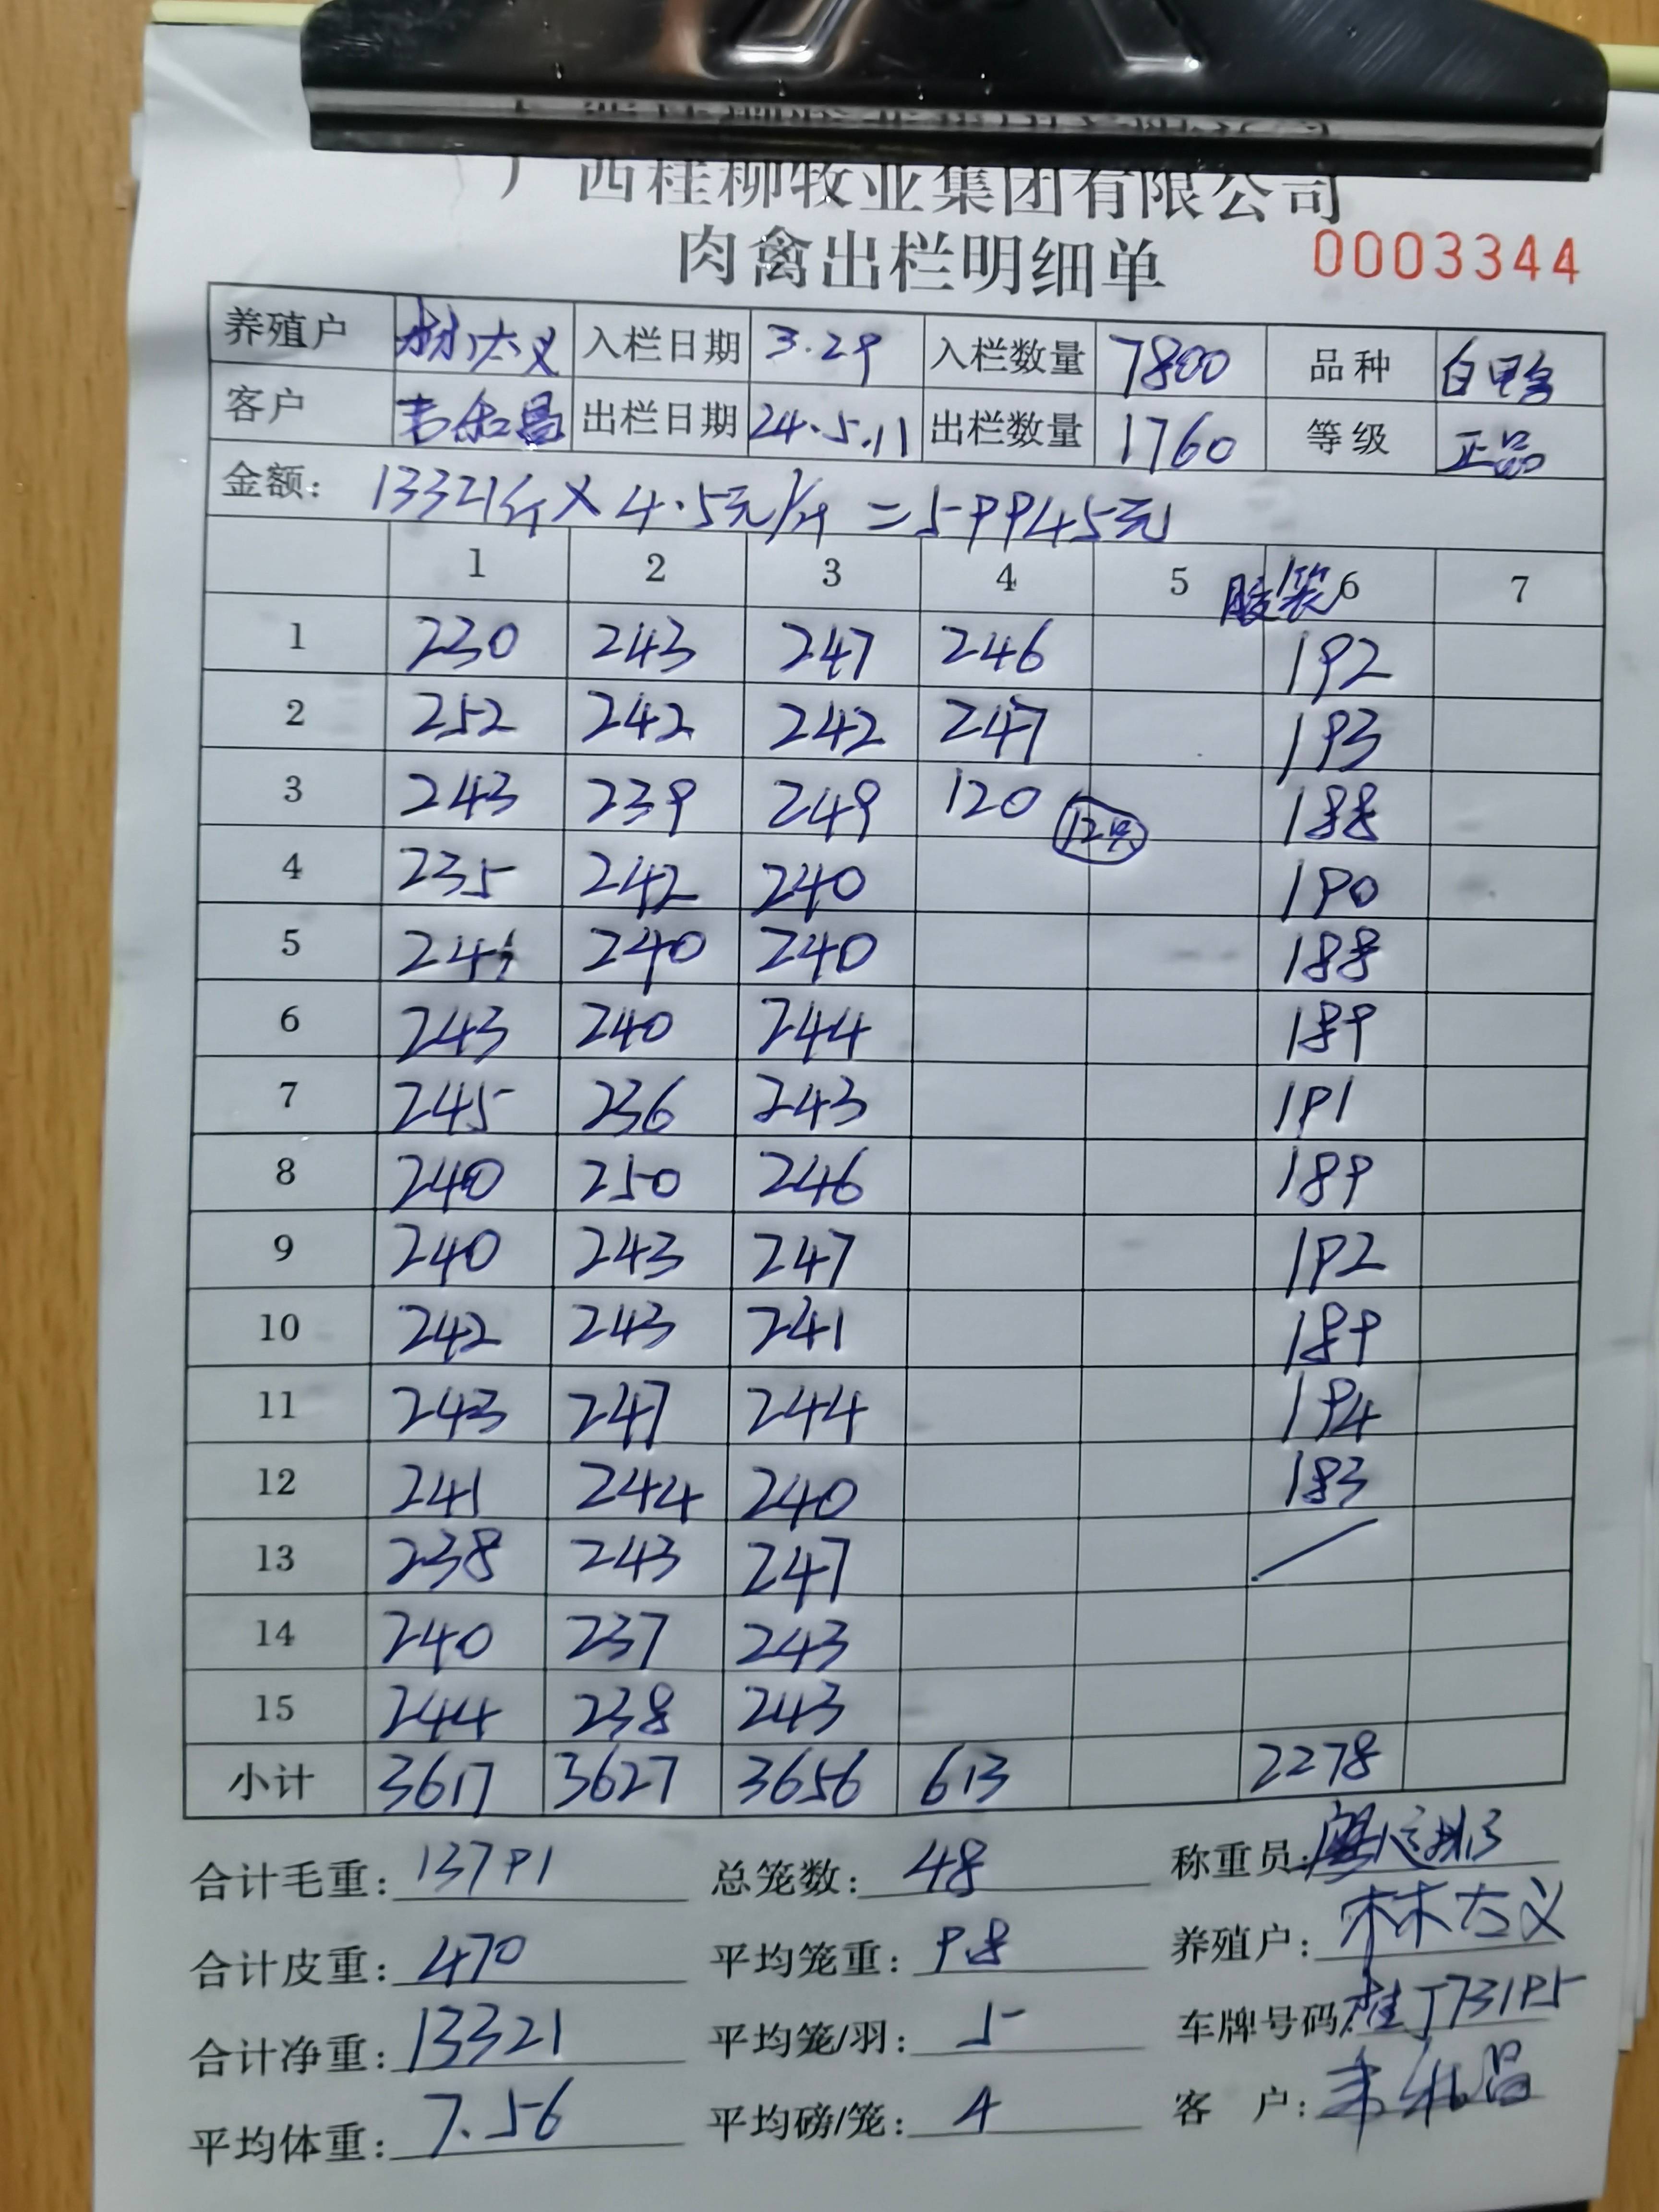 广西桂柳牧业集团有限公司
肉禽出栏明细单 0003344
养殖户 林太义 入栏日期 3.29 入栏数量 7800 品种 白鸭
客户 出栏日期 24.5.11 出栏数量 1760 等级 正品
金额: 13321斤×4.5元/斤=59945元
1 2 3 4 5 胶袋 6 7
1 230 243 247 246 192
2 252 242 242 247 193
3 243 239 249 120 12只 188
4 235 242 240 190
5 240 240 188
6 243 240 244 189
7 245 236 243 191
8 240 250 246 189
9 240 243 247 192
10 242 243 241 189
11 243 247 244 194
12 241 244 240 183
13 238 243 247
14 240 237 243
15 244 238 243
小计 3617 3627 3656 613 2278
合计毛重: 13791 总笼数: 48 称重员:
合计皮重: 470 平均笼重: 9.8 养殖户: 林太义
合计净重: 13321 平均笼/羽: 5 车牌号码: 桂J73195
平均体重: 7.56 平均磅/笼: 4 客 户: